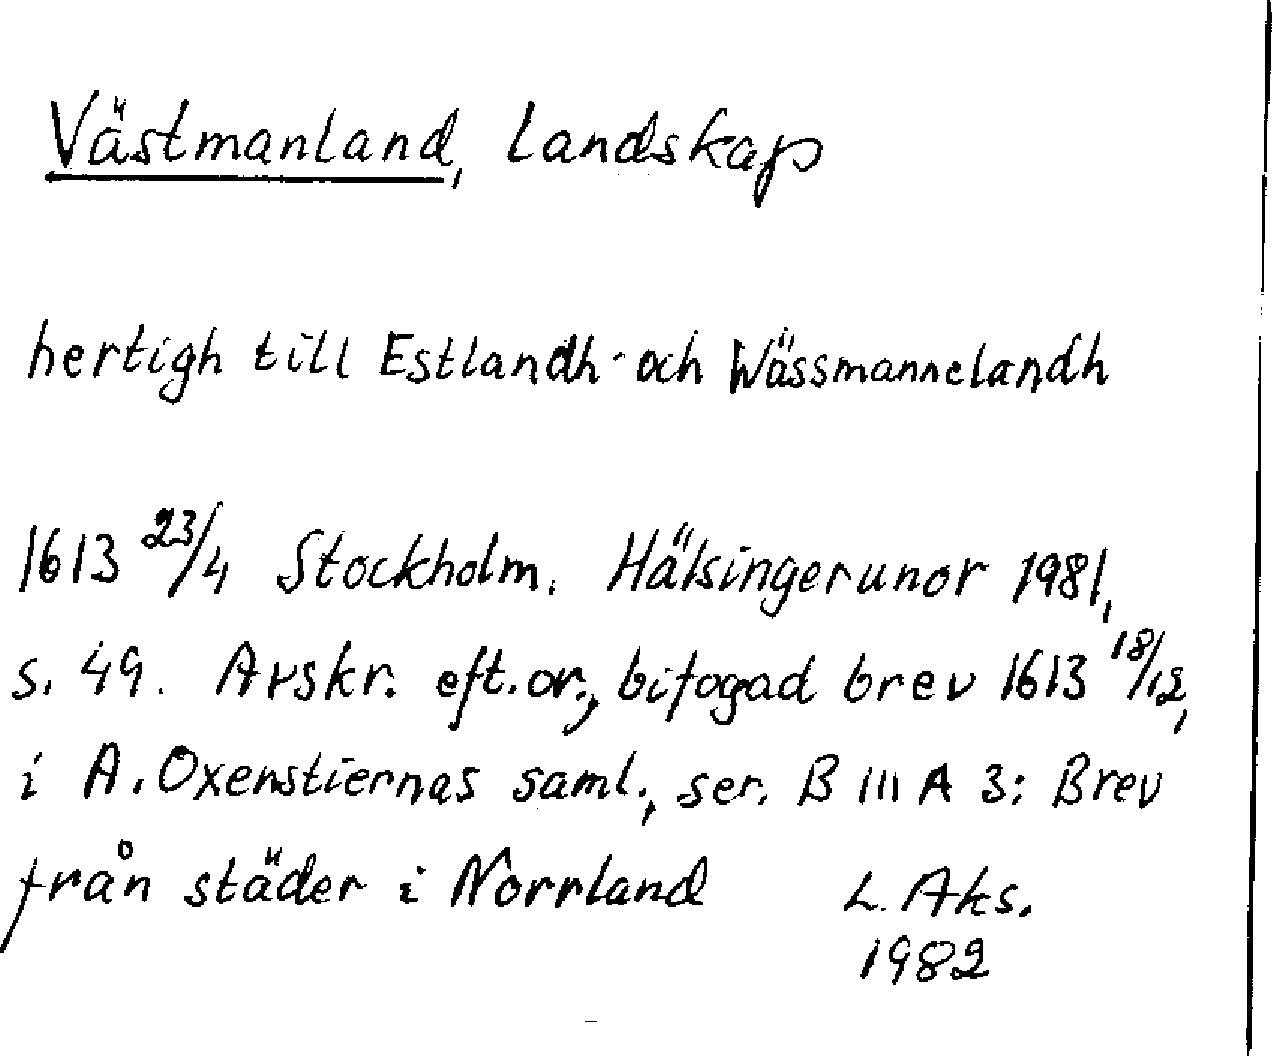 Västmanland, Landskap
hertigh till Estlandh och Wässmannelandh
1613 23/4 Stockholm. Hälsingerunor 1981,
s. 49. Avskr. eft. or., bifogad brev 1613 18/12,
i A. Oxenstiernas saml., ser. B III A 3: Brev
från städer i Norrland L. Aks.
1982